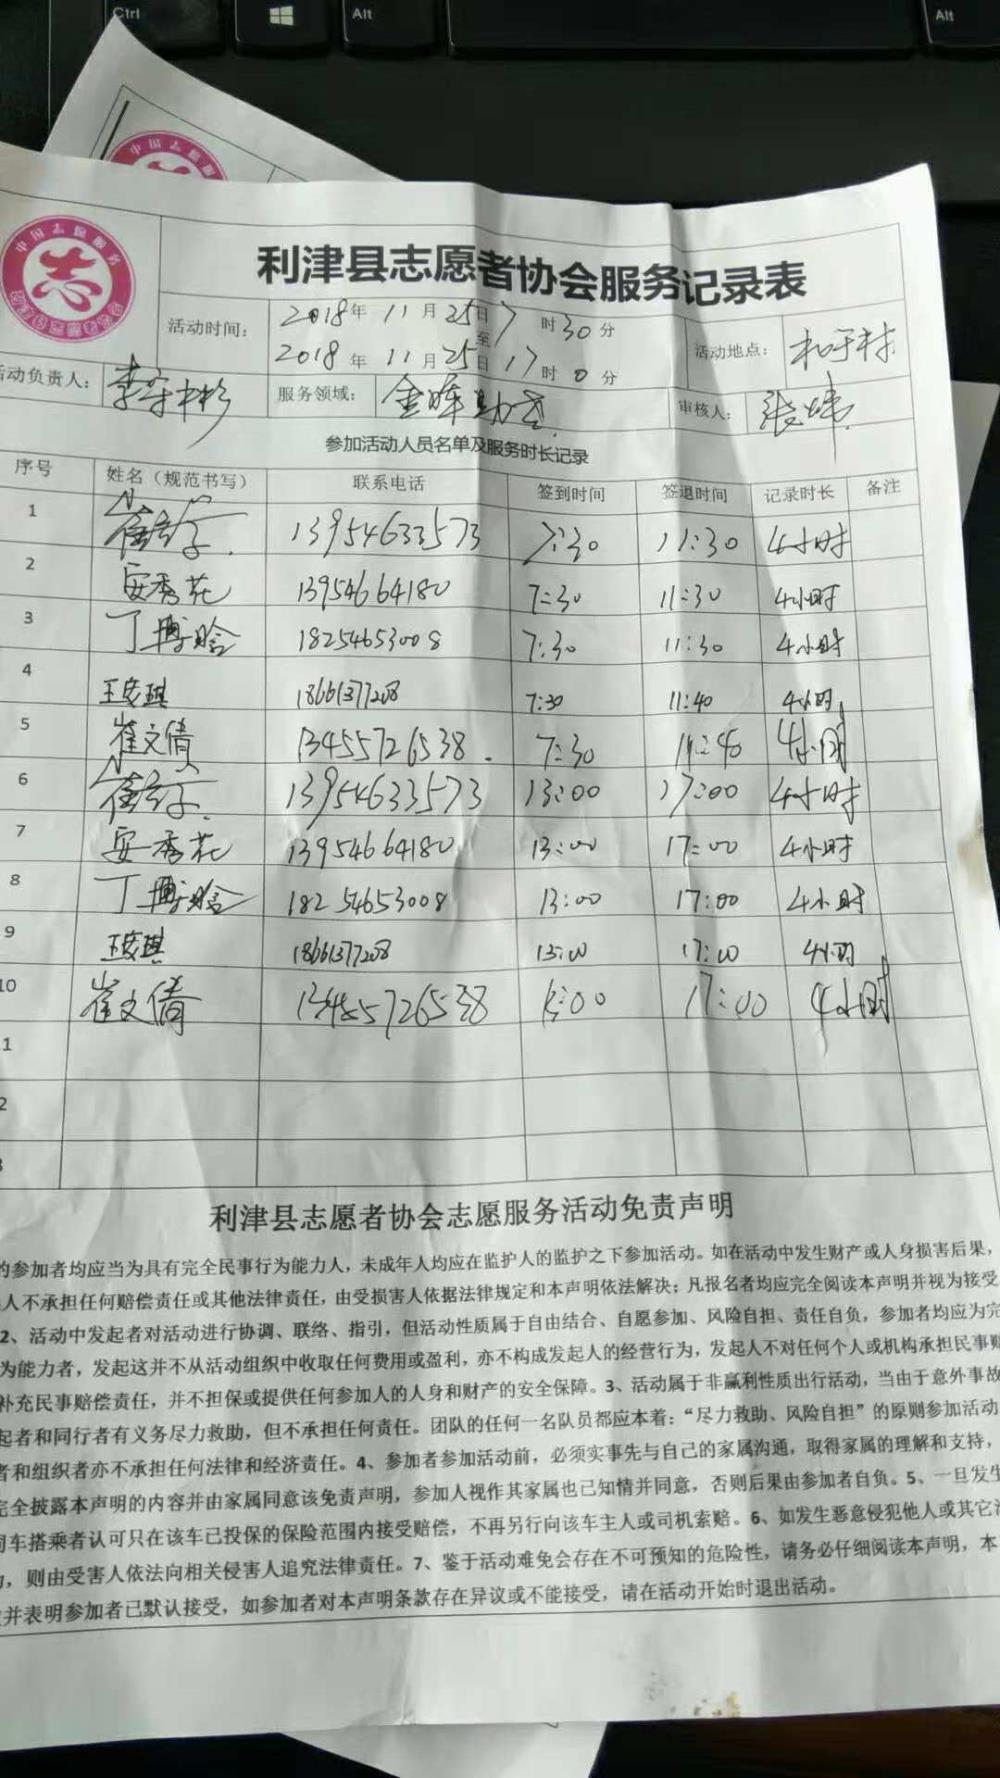 Ctrl
Alt
Alt
中国志愿服务
中国志愿服务
志
利津县志愿者协会服务记录表
活动时间：
2018年 11月25日 7时30分
至
2018年 11月25日 17时0分
活动地点：
和于村
活动负责人：
服务领域：
金晖助老
审核人：
张炜
参加活动人员名单及服务时长记录
序号 姓名（规范书写） 联系电话 签到时间 签退时间 记录时长 备注
1 13954633573 7:30 11:30 4小时
2 安秀花 13954664180 7:30 11:30 4小时
3 丁博晗 18254653008 7:30 11:30 4小时
4 王安琪 18661377208 7:30 11:40 4小时
5 崔文倩 13455726538 7:30 11:40 4小时
6 13954633573 13:00 17:00 4小时
7 安秀花 13954664180 13:00 17:00 4小时
8 丁博晗 18254653008 13:00 17:00 4小时
9 王安琪 18661377208 13:00 17:00 4小时
10 崔文倩 13455726538 :00 17:00 4小时
1
2
3
利津县志愿者协会志愿服务活动免责声明
的参加者均应当为具有完全民事行为能力人，未成年人均应在监护人的监护之下参加活动。如在活动中发生财产或人身损害后果，
人不承担任何赔偿责任或其他法律责任，由受损害人依据法律规定和本声明依法解决；凡报名者均应完全阅读本声明并视为接受
2、活动中发起者对活动进行协调、联络、指引，但活动性质属于自由结合、自愿参加、风险自担、责任自负，参加者均应为完
为能力者，发起这并不从活动组织中收取任何费用或盈利，亦不构成发起人的经营行为，发起人不对任何个人或机构承担民事赔
补充民事赔偿责任，并不担保或提供任何参加人的人身和财产的安全保障。3、活动属于非赢利性质出行活动，当由于意外事故
起者和同行者有义务尽力救助，但不承担任何责任。团队的任何一名队员都应本着：“尽力救助、风险自担”的原则参加活动
者和组织者亦不承担任何法律和经济责任。4、参加者参加活动前，必须实事先与自己的家属沟通，取得家属的理解和支持，
完全披露本声明的内容并由家属同意该免责声明，参加人视作其家属也已知情并同意，否则后果由参加者自负。5、一旦发生
司车搭乘者认可只在该车已投保的保险范围内接受赔偿，不再另行向该车主人或司机索赔。6、如发生恶意侵犯他人或其它
，则由受害人依法向相关侵害人追究法律责任。7、鉴于活动难免会存在不可预知的危险性，请务必仔细阅读本声明，本
并表明参加者已默认接受，如参加者对本声明条款存在异议或不能接受，请在活动开始时退出活动。